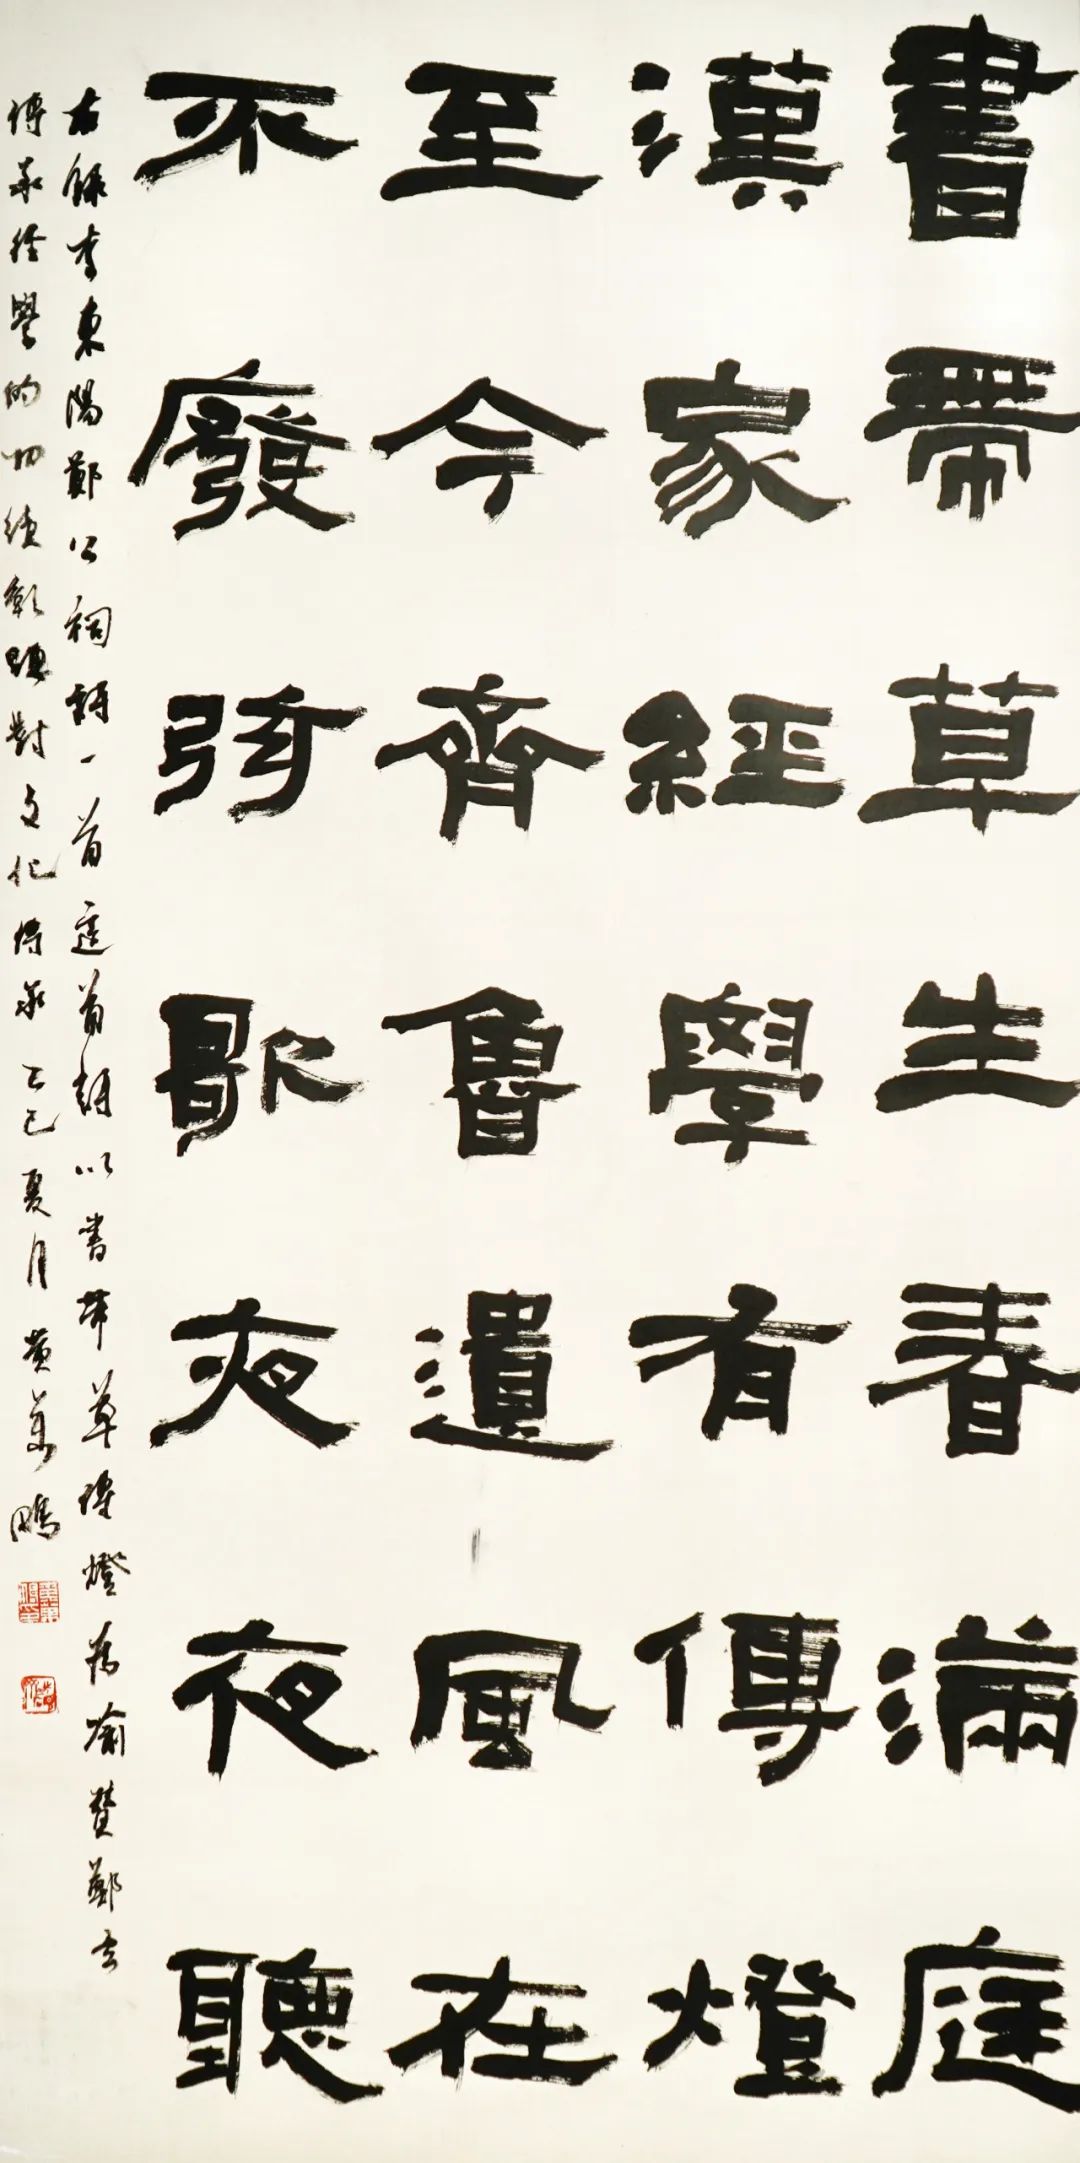 書帶草生春滿庭
漢家經學有傳燈
至今齊魯遺風在
不廢弦歌夜夜聽
右錄李東陽鄭公祠詩一首這首詩以書帶草傳燈為喻贊鄭玄
傳承經學的功績彰顯對文化傳承乙巳夏月黃美鵬